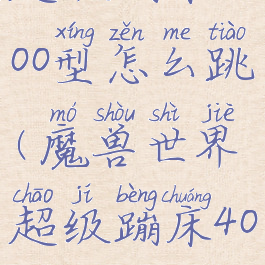 xíng zěn me tiào
00型怎么跳
mó shòu shì jiè
(魔兽世界
chāo jí bèng chuáng
超级蹦床40